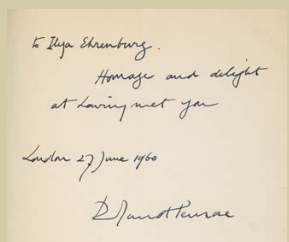 to Ilya Ehrenburg.
Homage and delight
at having met you
London 27 June 1960